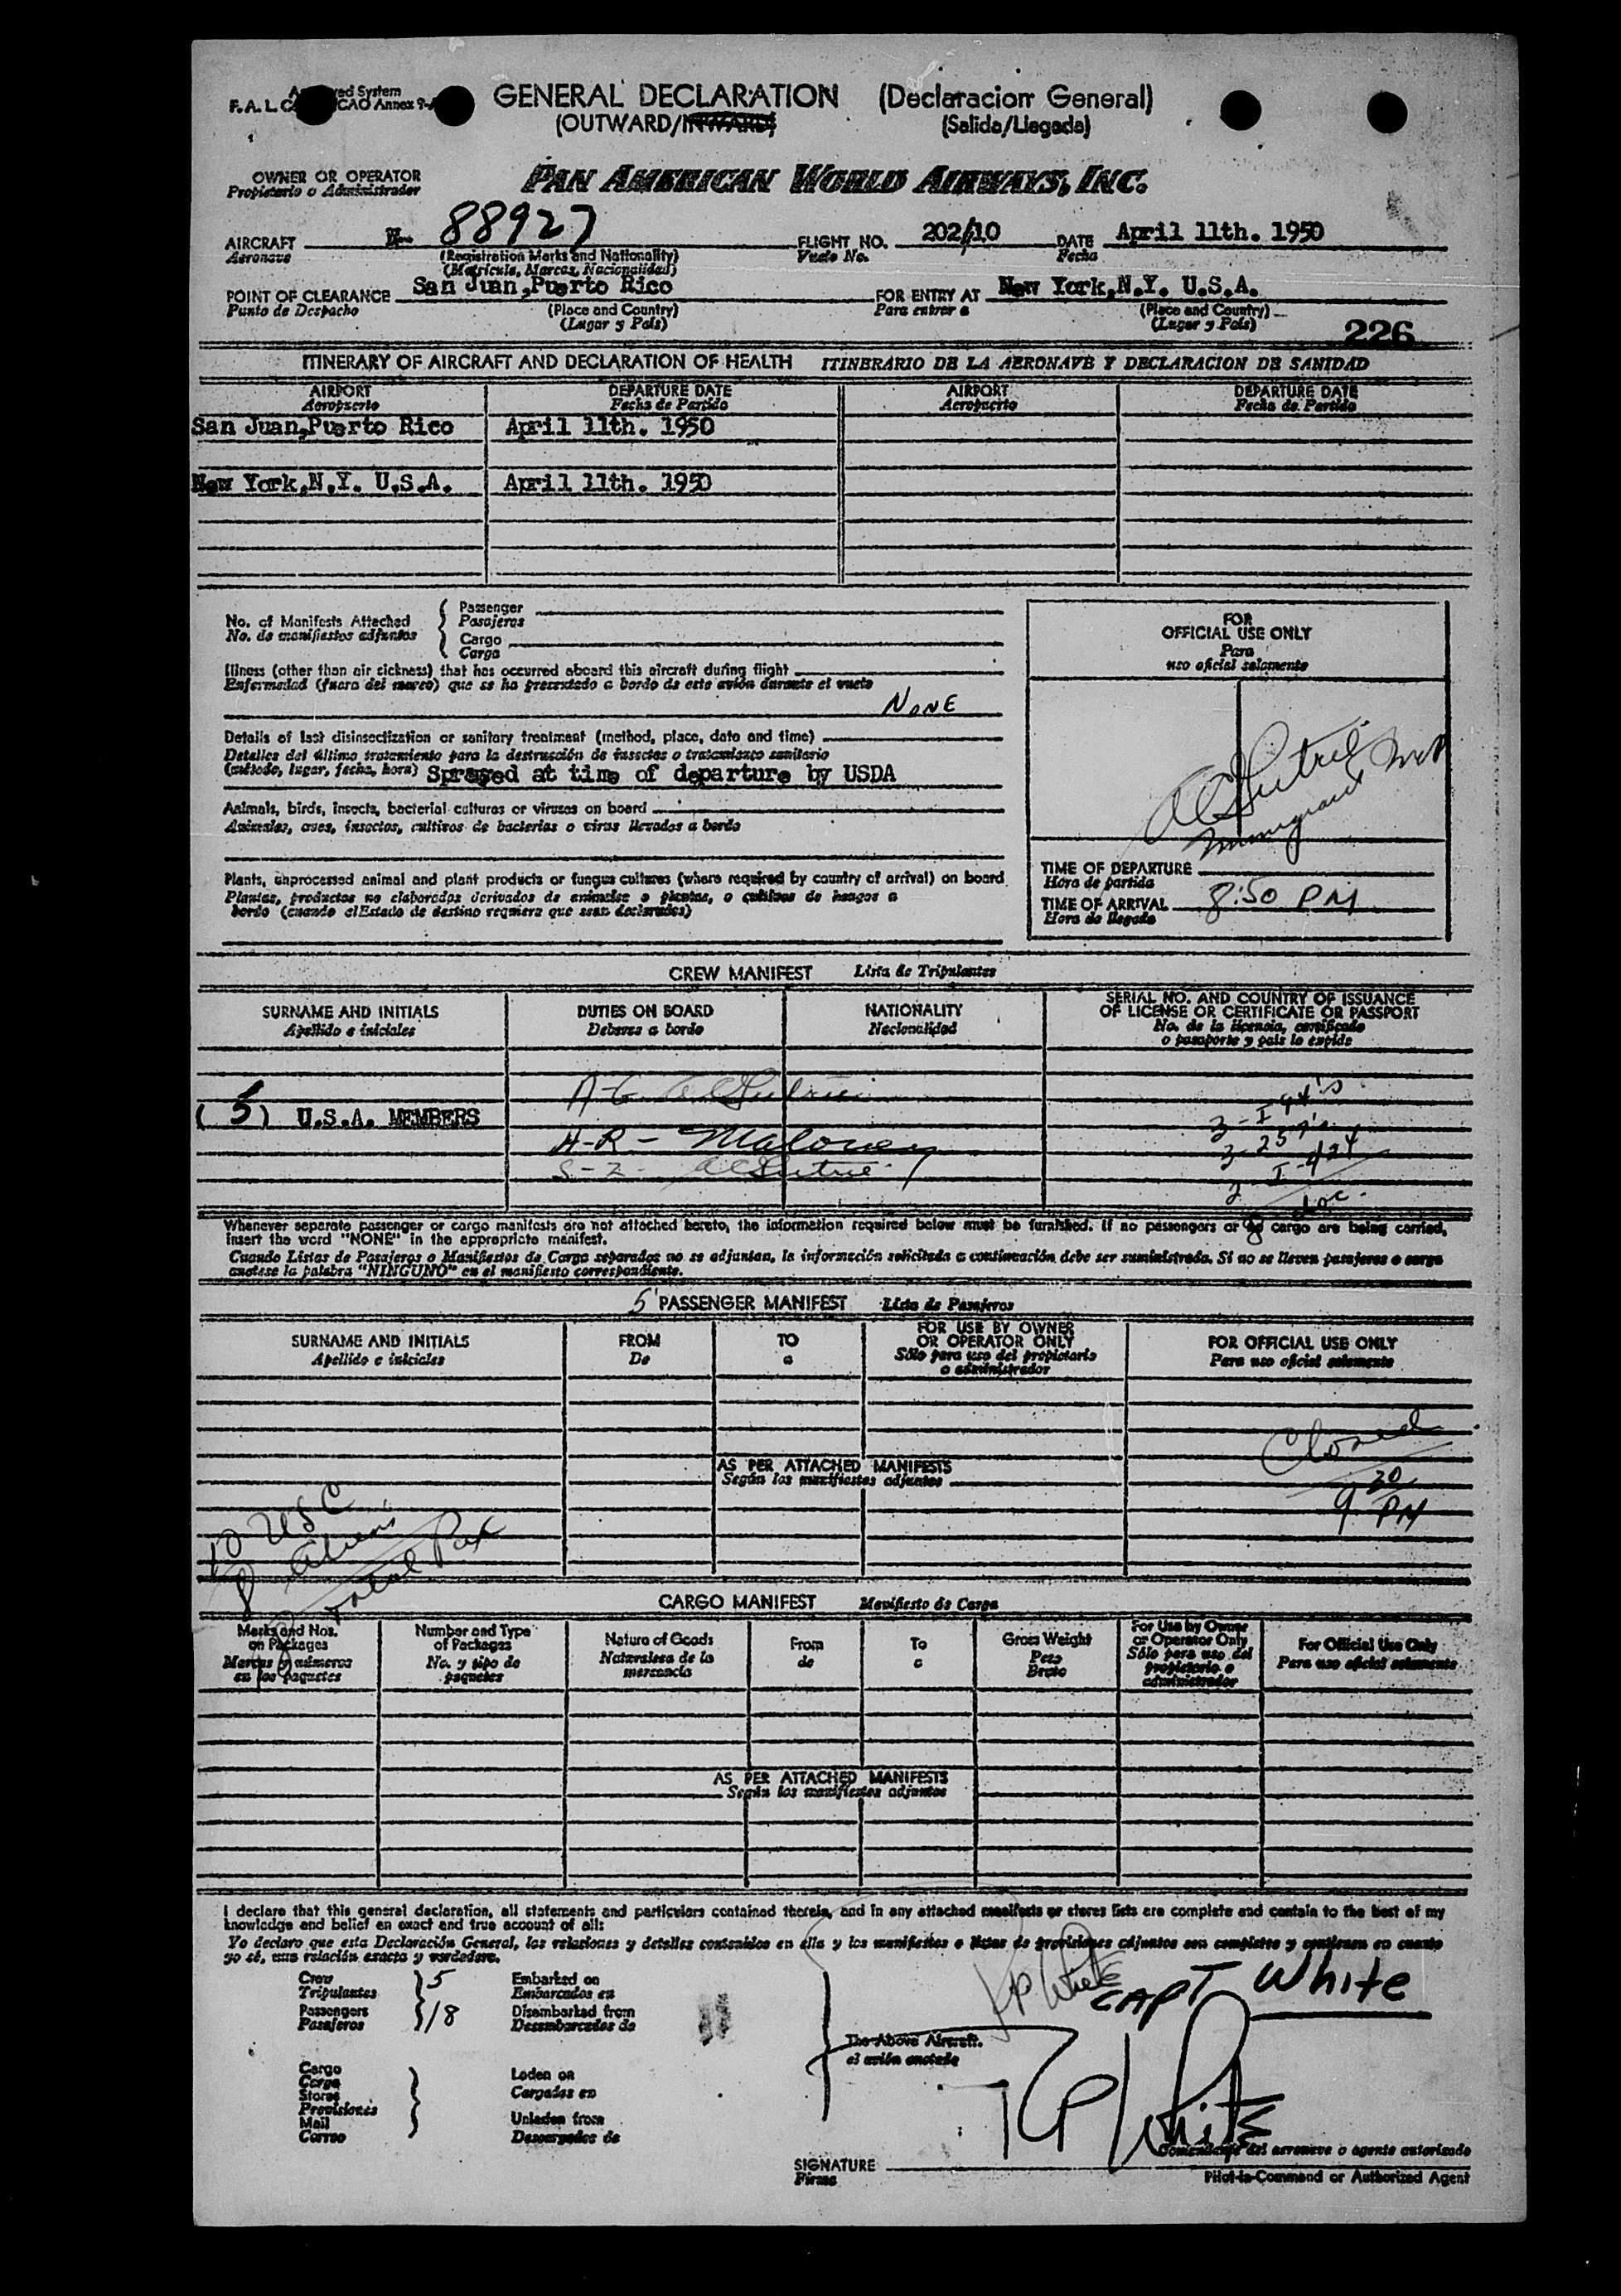 GENERAL DECLARATION (Declaracion General)
(OUTWARD/INWARD) (Salida/Llegada)
F. A. L. ICAO Annex 9-
OWNER OR OPERATOR
Propietario o Administrador
PAN AMERICAN WORLD AIRWAYS, INC.
AIRCRAFT N- 88927 FLIGHT NO. 202/10 DATE April 11th. 1950
Aeronave (Registration Marks and Nationality) Vuelo No. Fecha
(Matrícula, Marcas, Nacionalidad)
POINT OF CLEARANCE San Juan,Puerto Rico FOR ENTRY AT New York,N.Y. U.S.A.
Punto de Despacho (Place and Country) Para entrar a (Place and Country)
(Lugar y País) (Lugar y País) 226
ITINERARY OF AIRCRAFT AND DECLARATION OF HEALTH ITINERARIO DE LA AERONAVE Y DECLARACION DE SANIDAD
AIRPORT DEPARTURE DATE AIRPORT DEPARTURE DATE
Aeropuerto Fecha de Partida Aeropuerto Fecha de Partida
San Juan,Puerto Rico April 11th. 1950
New York,N.Y. U.S.A. April 11th. 1950
No. of Manifests Attached Passenger
No. de manifiestos adjuntos Pasajeros
Cargo
Carga
Illness (other than air sickness) that has occurred aboard this aircraft during flight
Enfermedad (fuera del mareo) que se ha presentado a bordo de este avión durante el vuelo
NONE
Details of last disinsectization or sanitary treatment (method, place, date and time)
Detalles del último tratamiento para la destrucción de insectos o tratamiento sanitario
(método, lugar, fecha, hora) Sprayed at time of departure by USDA
Animals, birds, insects, bacterial cultures or viruses on board
Animales, aves, insectos, cultivos de bacterias o virus llevados a bordo
Plants, unprocessed animal and plant products or fungus cultures (where required by country of arrival) on board
Plantas, productos no elaborados derivados de animales o plantas, o cultivos de hongos a
bordo (cuando el Estado de destino requiera que sean declarados)
FOR
OFFICIAL USE ONLY
Para
uso oficial solamente
TIME OF DEPARTURE
Hora de partida
TIME OF ARRIVAL 8:50 PM
Hora de llegada
CREW MANIFEST Lista de Tripulantes
SURNAME AND INITIALS DUTIES ON BOARD NATIONALITY SERIAL NO. AND COUNTRY OF ISSUANCE
OF LICENSE OR CERTIFICATE OR PASSPORT
Apellido e iniciales Deberes a bordo Nacionalidad No. de la licencia, certificado
o pasaporte y país lo expide
(5) U.S.A. MEMBERS
A-R- Maloney
3-I 94's
3-257's
I-424
Whenever separate passenger or cargo manifests are not attached hereto, the information required below must be furnished. If no passengers or no cargo are being carried,
insert the word "NONE" in the appropriate manifest.
Cuando Listas de Pasajeros o Manifiestos de Carga separados no se adjuntan, la información solicitada a continuación debe ser suministrada. Si no se llevan pasajeros o carga
anótese la palabra "NINGUNO" en el manifiesto correspondiente.
5 PASSENGER MANIFEST Lista de Pasajeros
SURNAME AND INITIALS FROM TO FOR USE BY OWNER
OR OPERATOR ONLY FOR OFFICIAL USE ONLY
Apellido e iniciales De a Sólo para uso del propietario
o administrador Para uso oficial solamente
AS PER ATTACHED MANIFESTS
Según los manifiestos adjuntos
Closed
9 20 PM
10 USC
8 Aliens
Total Pax
CARGO MANIFEST Manifiesto de Carga
Marks and Nos.
on Packages
Marcas y números
en los paquetes
Number and Type
of Packages
No. y tipo de
paquetes
Nature of Goods
Naturaleza de la
mercancía
From
de
To
a
Gross Weight
Peso
Bruto
For Use by Owner
or Operator Only
Sólo para uso del
propietario o
administrador
For Official Use Only
Para uso oficial solamente
AS PER ATTACHED MANIFESTS
Según los manifiestos adjuntos
I declare that this general declaration, all statements and particulars contained therein, and in any attached manifests or stores lists are complete and contain to the best of my
knowledge and belief an exact and true account of all:
Yo declaro que esta Declaración General, las relaciones y detalles contenidos en ella y los manifiestos o listas de provisiones adjuntos son completos y contienen en cuanto
yo sé, una relación exacta y verdadera.
Crew 5 Embarked on
Tripulantes Embarcados en
Passengers 18 Disembarked from
Pasajeros Desembarcados de
Cargo
Carga
Stores
Provisiones
Mail
Correo
Laden on
Cargados en
Unladen from
Descargados de
The Above Aircraft.
el avión anotado
CAPT White
SIGNATURE
Firma
Comandante del aeronave o agente autorizado
Pilot-in-Command or Authorized Agent